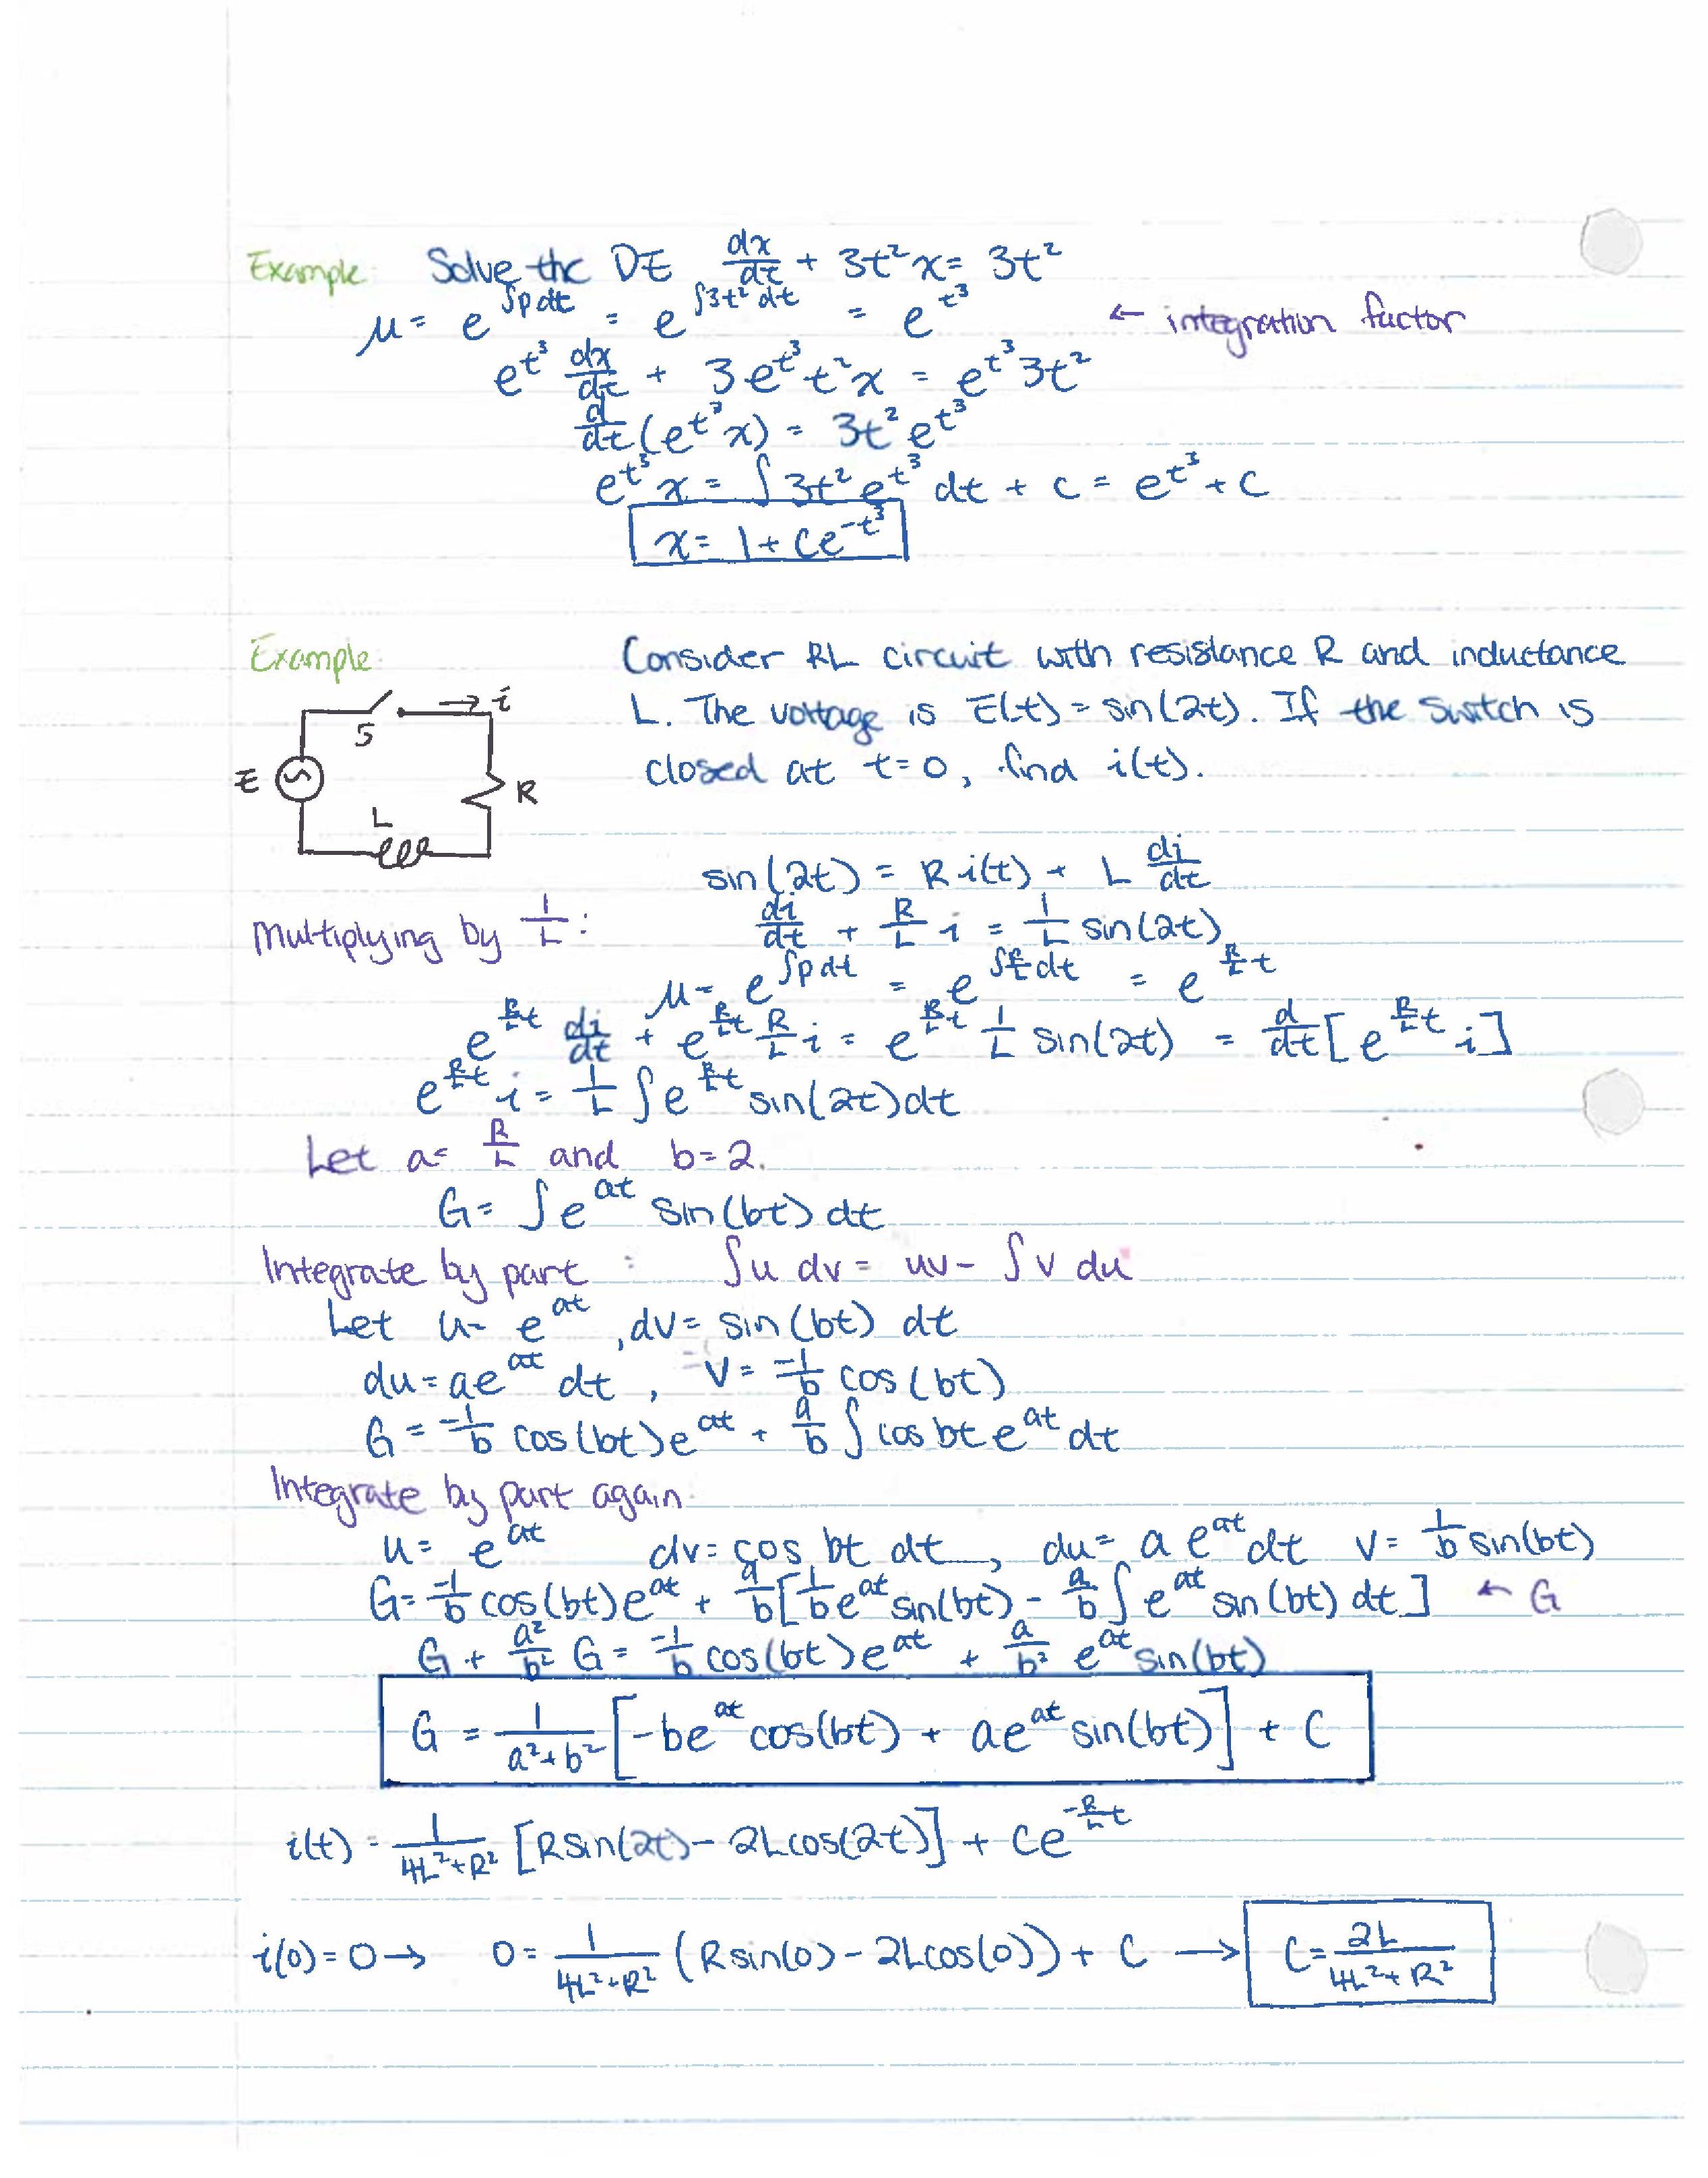 Example: Solve the DE dx/dt + 3t²x = 3t²
μ = e^∫pdt = e^∫3t² dt = e^t³ ← integration factor
e^t³ dx/dt + 3e^t³ t²x = e^t³ 3t²
d/dt(e^t³ x) = 3t² e^t³
e^t³ x = ∫3t² e^t³ dt + c = e^t³ + C
x = 1 + Ce^-t³
Example: Consider RL circuit with resistance R and inductance
L. The voltage is E(t) = sin(2t). If the switch is
closed at t=0, find i(t).
→ i
S
E
R
L
sin(2t) = R i(t) + L di/dt
Multiplying by 1/L: di/dt + R/L i = 1/L sin(2t)
μ = e^∫pdt = e^∫R/L dt = e^R/L t
e^R/L t di/dt + e^R/L t R/L i = e^R/L t 1/L sin(2t) = d/dt[e^R/L t i]
e^R/L t i = 1/L ∫e^R/L t sin(2t)dt
Let a = R/L and b=2.
G = ∫e^at sin(bt) dt
Integrate by part : ∫u dv = uv - ∫v du
Let u = e^at, dv = sin(bt) dt
du = ae^at dt, v = -1/b cos(bt)
G = -1/b cos(bt)e^at + a/b ∫cos bt e^at dt
Integrate by part again
u = e^at dv = cos bt dt, du = a e^at dt v = 1/b sin(bt)
G = -1/b cos(bt)e^at + a/b[1/b e^at sin(bt) - a/b ∫e^at sin(bt) dt] ← G
G + a²/b² G = -1/b cos(bt)e^at + a/b² e^at sin(bt)
G = 1/(a²+b²) [-be^at cos(bt) + ae^at sin(bt)] + C
i(t) = 1/(4L²+R²) [Rsin(2t) - 2Lcos(2t)] + Ce^-R/L t
i(0) = 0 → 0 = 1/(4L²+R²) (Rsin(0) - 2Lcos(0)) + C → C = 2L/(4L²+R²)